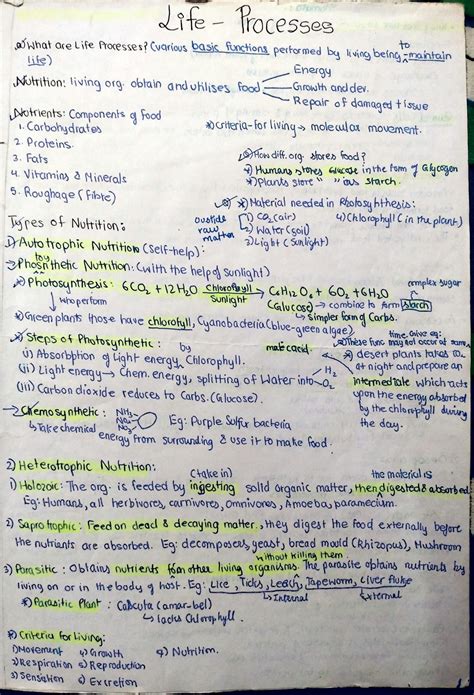 Life - Processes
a) What are Life Processes? (various basic functions performed by living being to maintain
life)
Nutrition: living org. obtain and utilises food
Energy
Growth and dev.
Repair of damaged tissue
Nutrients: Components of food
*) criteria-for living → molecular movement.
1. Carbohydrates
2. Proteins.
3. Fats
4. Vitamins & Minerals
5. Roughage (Fibre)
How diff. org stores food?
* Humans stores Glucose in the form of Glycogen
*) Plants store " " as starch.
*) Material needed in Photosynthesis:
outside raw matter
1) CO2 (air)
2) Water (soil)
3) Light (Sunlight)
4) Chlorophyll (in the plant)
Types of Nutrition:
1) Autotrophic Nutrition (self-help):
Photosynthetic Nutrition: (with the help of sunlight)
*) Photosynthesis: 6CO2 + 12H2O Chlorophyll Sunlight → C6H12O6 + 6O2 + 6H2O
complex sugar
↳ who perform
(Glucose) → combine to form Starch
↳ simpler form of Carbs.
*) Green plants those have chlorofyll, Cyanobacteria (blue-green algae)
*) Steps of Photosynthetic:
i) Absorbption of Light energy by Chlorophyll.
(ii) Light energy → Chem. energy, splitting of Water into H2 O2
(iii) Carbon dioxide reduces to Carbs. (Glucose).
*) These func may not occur at same time. Give eg:
malic acid.
* desert plants takes CO2
at night and prepare an
Intermediate which acts
upon the energy absorbed
by the chlorophyll during
the day.
Chemosynthetic: NH3
Eg: Purple Sulfur bacteria
↳ Take chemical energy from surrounding & use it to make food.
2) Heterotrophic Nutrition:
1) Holozoic: The org. is feeded by ingesting (take in) solid organic matter, then the material is digested & absorbed
Eg: Humans, all herbivores, carnivores, Omnivores, Amoeba, paramecium.
2) Saprotrophic: Feed on dead & decaying matter, they digest the food externally before
the nutrients are absorbed. Eg: decomposers, yeast, bread mould (Rhizopus), Mushroom
3) Parasitic: Obtains nutrients from other living organisms without killing them. The parasite obtains nutrients by
living on or in the body of host. Eg: Lice, Ticks, Leech, Tapeworm, Liver fluke
↳ Internal
↳ External
* Parasitic Plant: Cuscuta (amar-bel)
↳ lacks Chlorophyll.
*) Criteria for living:
1) Movement
4) Growth
7) Nutrition.
2) Respiration
5) Reproduction
3) Sensation
6) Excretion